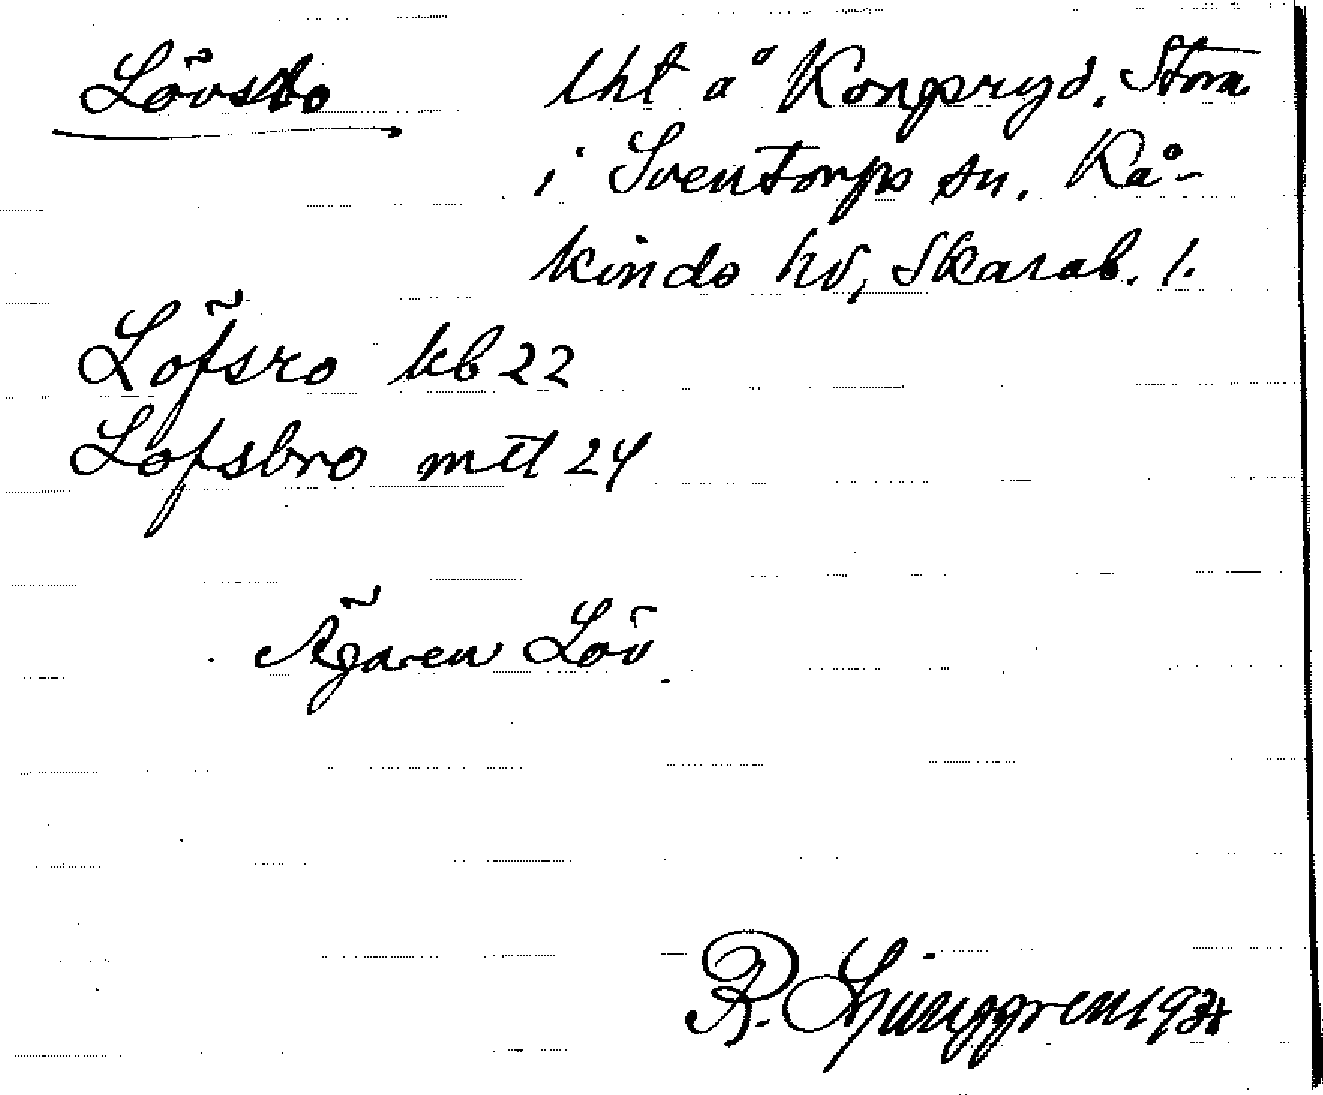 Lövsbo lht å Kongsryd. Stora
i Sventorps sn. Kå-
kinds hd, Skarab. l.
Löfsro kb 22
Löfsbro mtl 24
Ägaren Löv
R. Ljunggren 1931